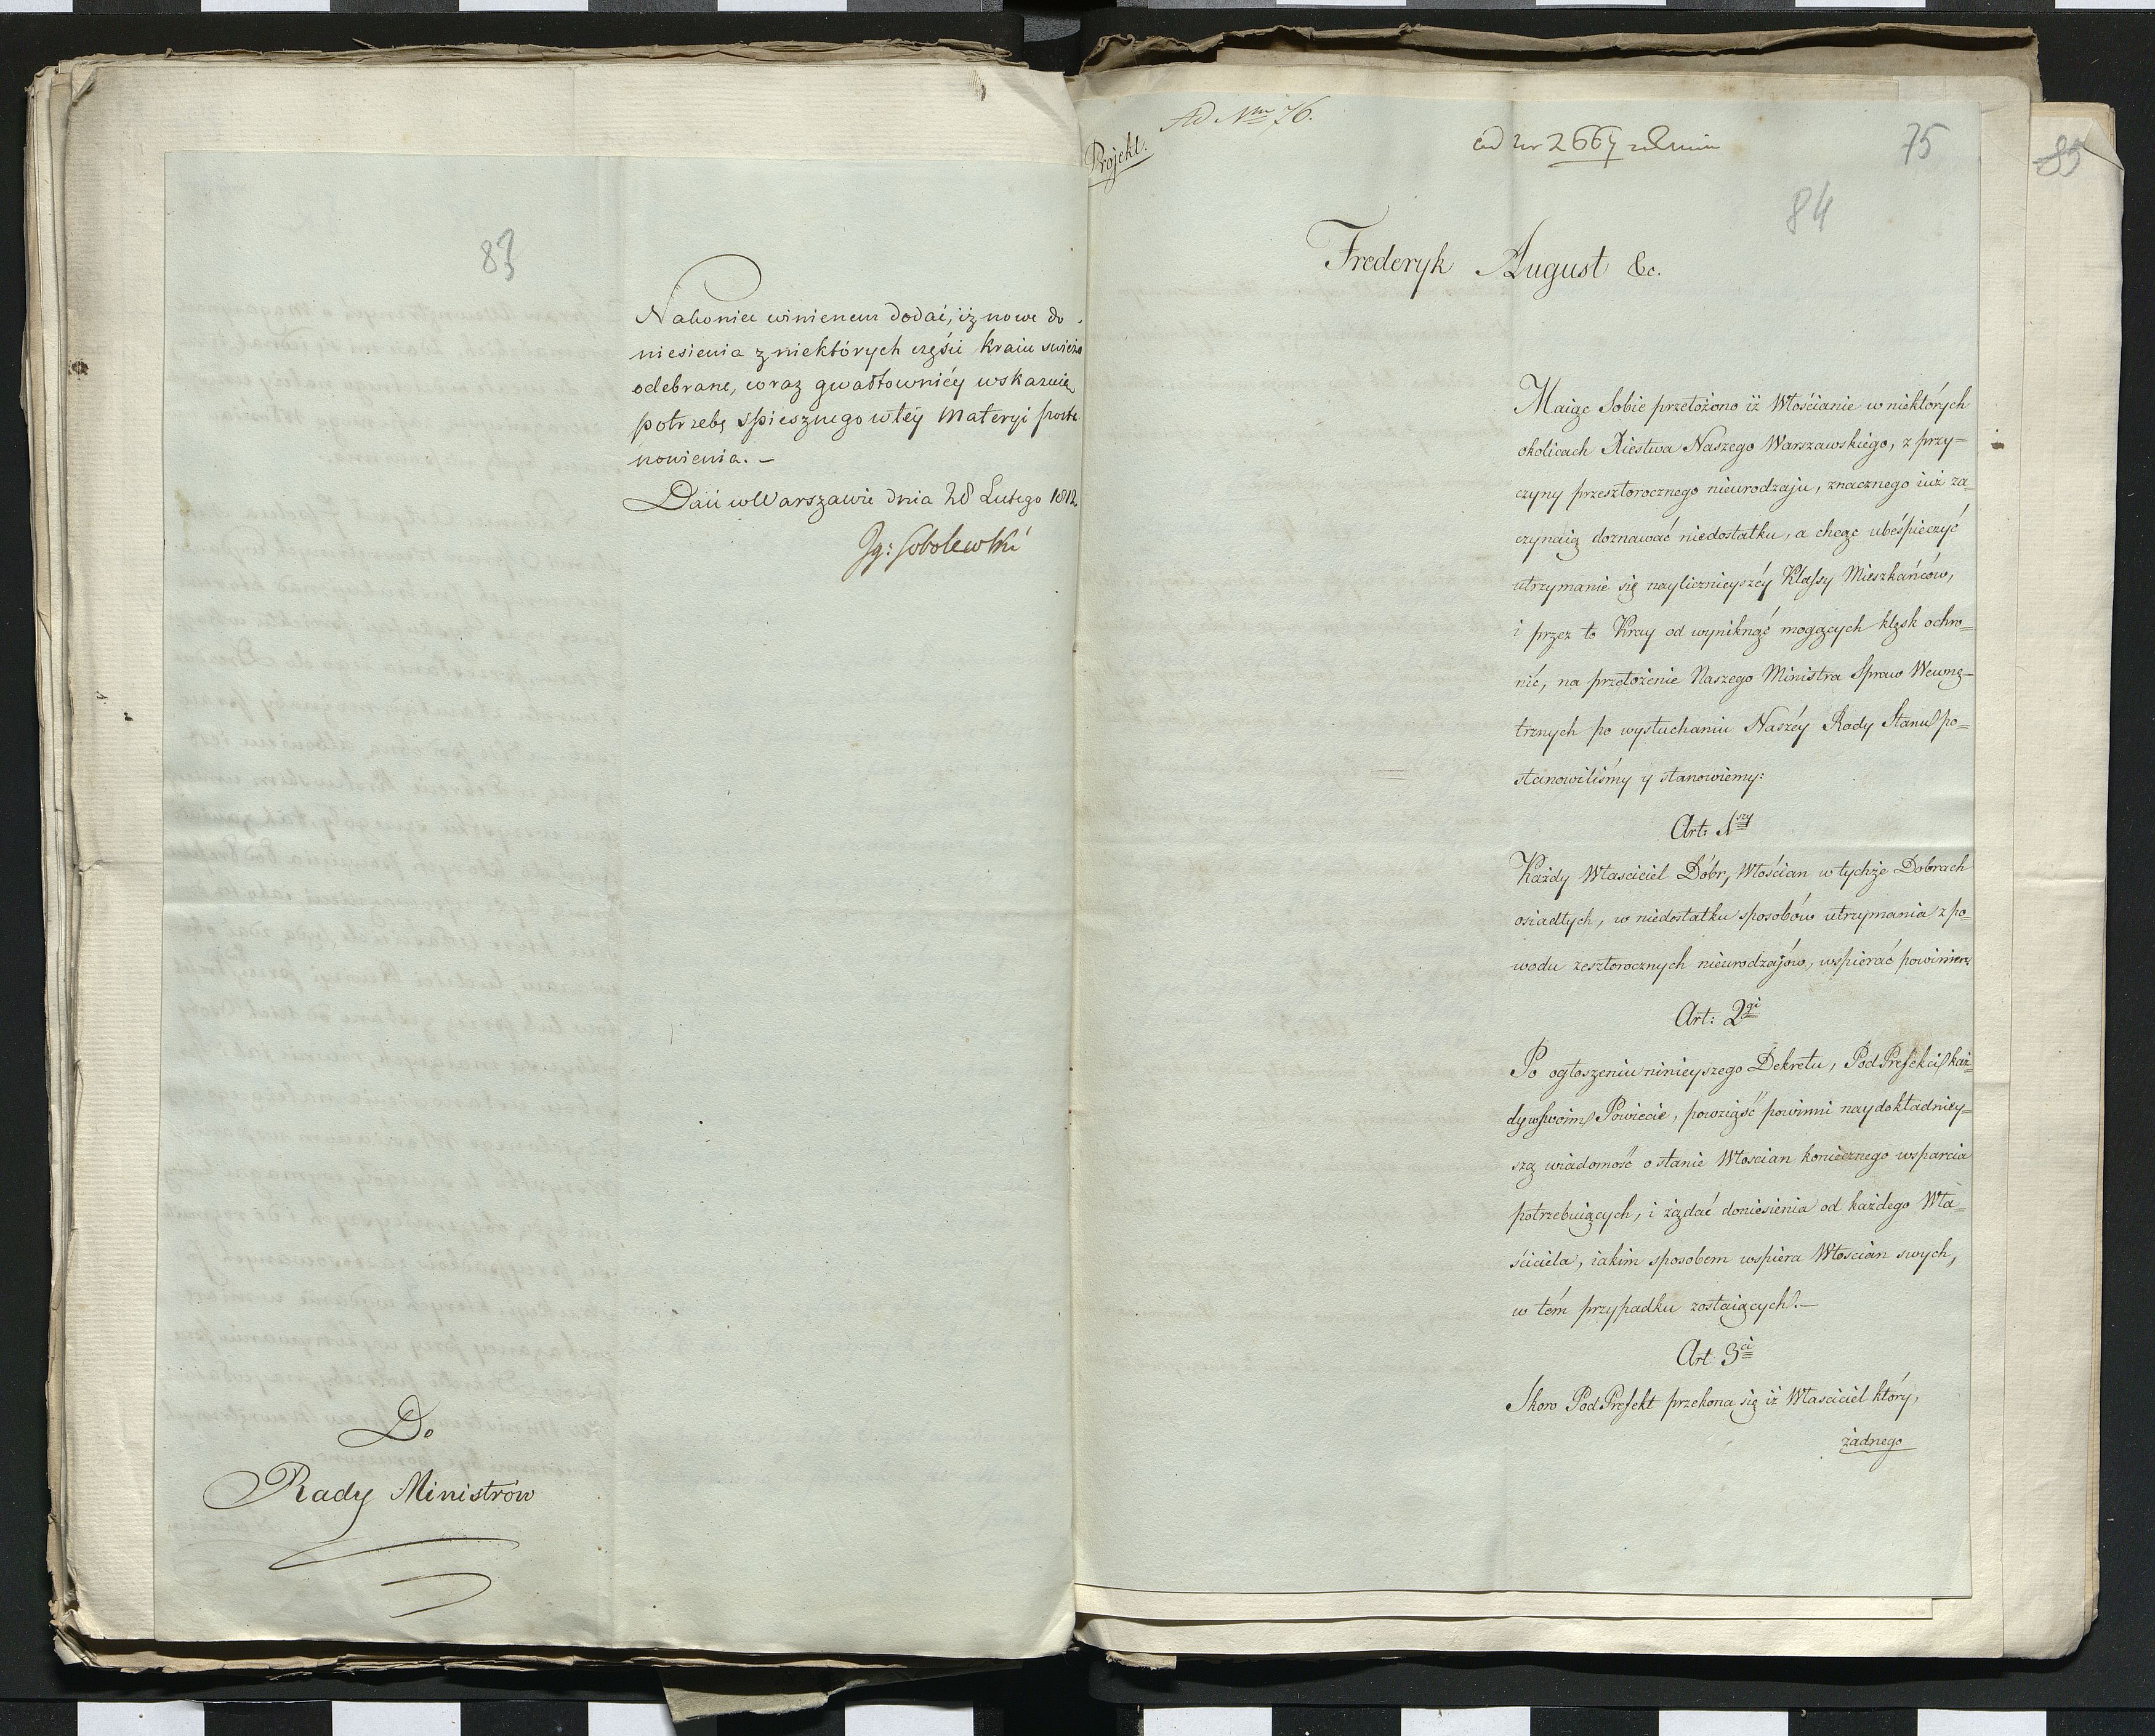 83
Nakoniec winienem dodać, iż nowe do-
niesienia z niektórych części kraiu swieżo
odebrane, coraz gwałtownićy wskazuią
potrzebę spiesznego w téy materyi posta
nowienia. —
Dań w Warszawie dnia 28 Lutego 1812
Ig: Sobolewski
Do
Rady Ministrów
Ad Nrm 76.
Projekt.
ad nr 2667
75
85
84
Frederyk August &c.
Maiąc Sobie przełożono iż Włościanie w niektórych
okolicach Xiestwa Naszego Warszawskiego, z przy=
czyny przeszłorocznego nieurodzaju, znacznego iuż za=
czynaią doznawać niedostatku, a chcąc ubeśpieczyć
utrzymanie się naylicznieyszéy Klassy Mieszkańców,
i przez to Kray od wyniknąć mogących klęsk ochro=
nić, na przełożenie Naszego Ministra Spraw Wewnę=
trznych po wysłuchaniu Naszéy Rady Stanu po=
stanowiliśmy y stanowiemy:
Art: 1szy
Każdy Własciciel Dóbr, Włościan w tychże Dobrach
osiadłych, w niedostatku sposobów utrzymania z po=
wodu zeszłorocznych nieurodzajów, wspierać powinien
Art: 2gi
Po ogłoszeniu ninieyszego Dekretu, PodPrefekci każ=
dy w swoim Powiecie, powziąść powinni naydokładniey=
szą wiadomość o stanie Włoscian koniecznego wsparcia
potrzebuiących, i żądać doniesienia od każdego Wła=
ściciela, iakim sposobem wspiera Włoscian swych,
w tém przypadku zostaiących. —
Art 3ci
Skoro PodPrefekt przekona się iż Własciciel który,
żadnego